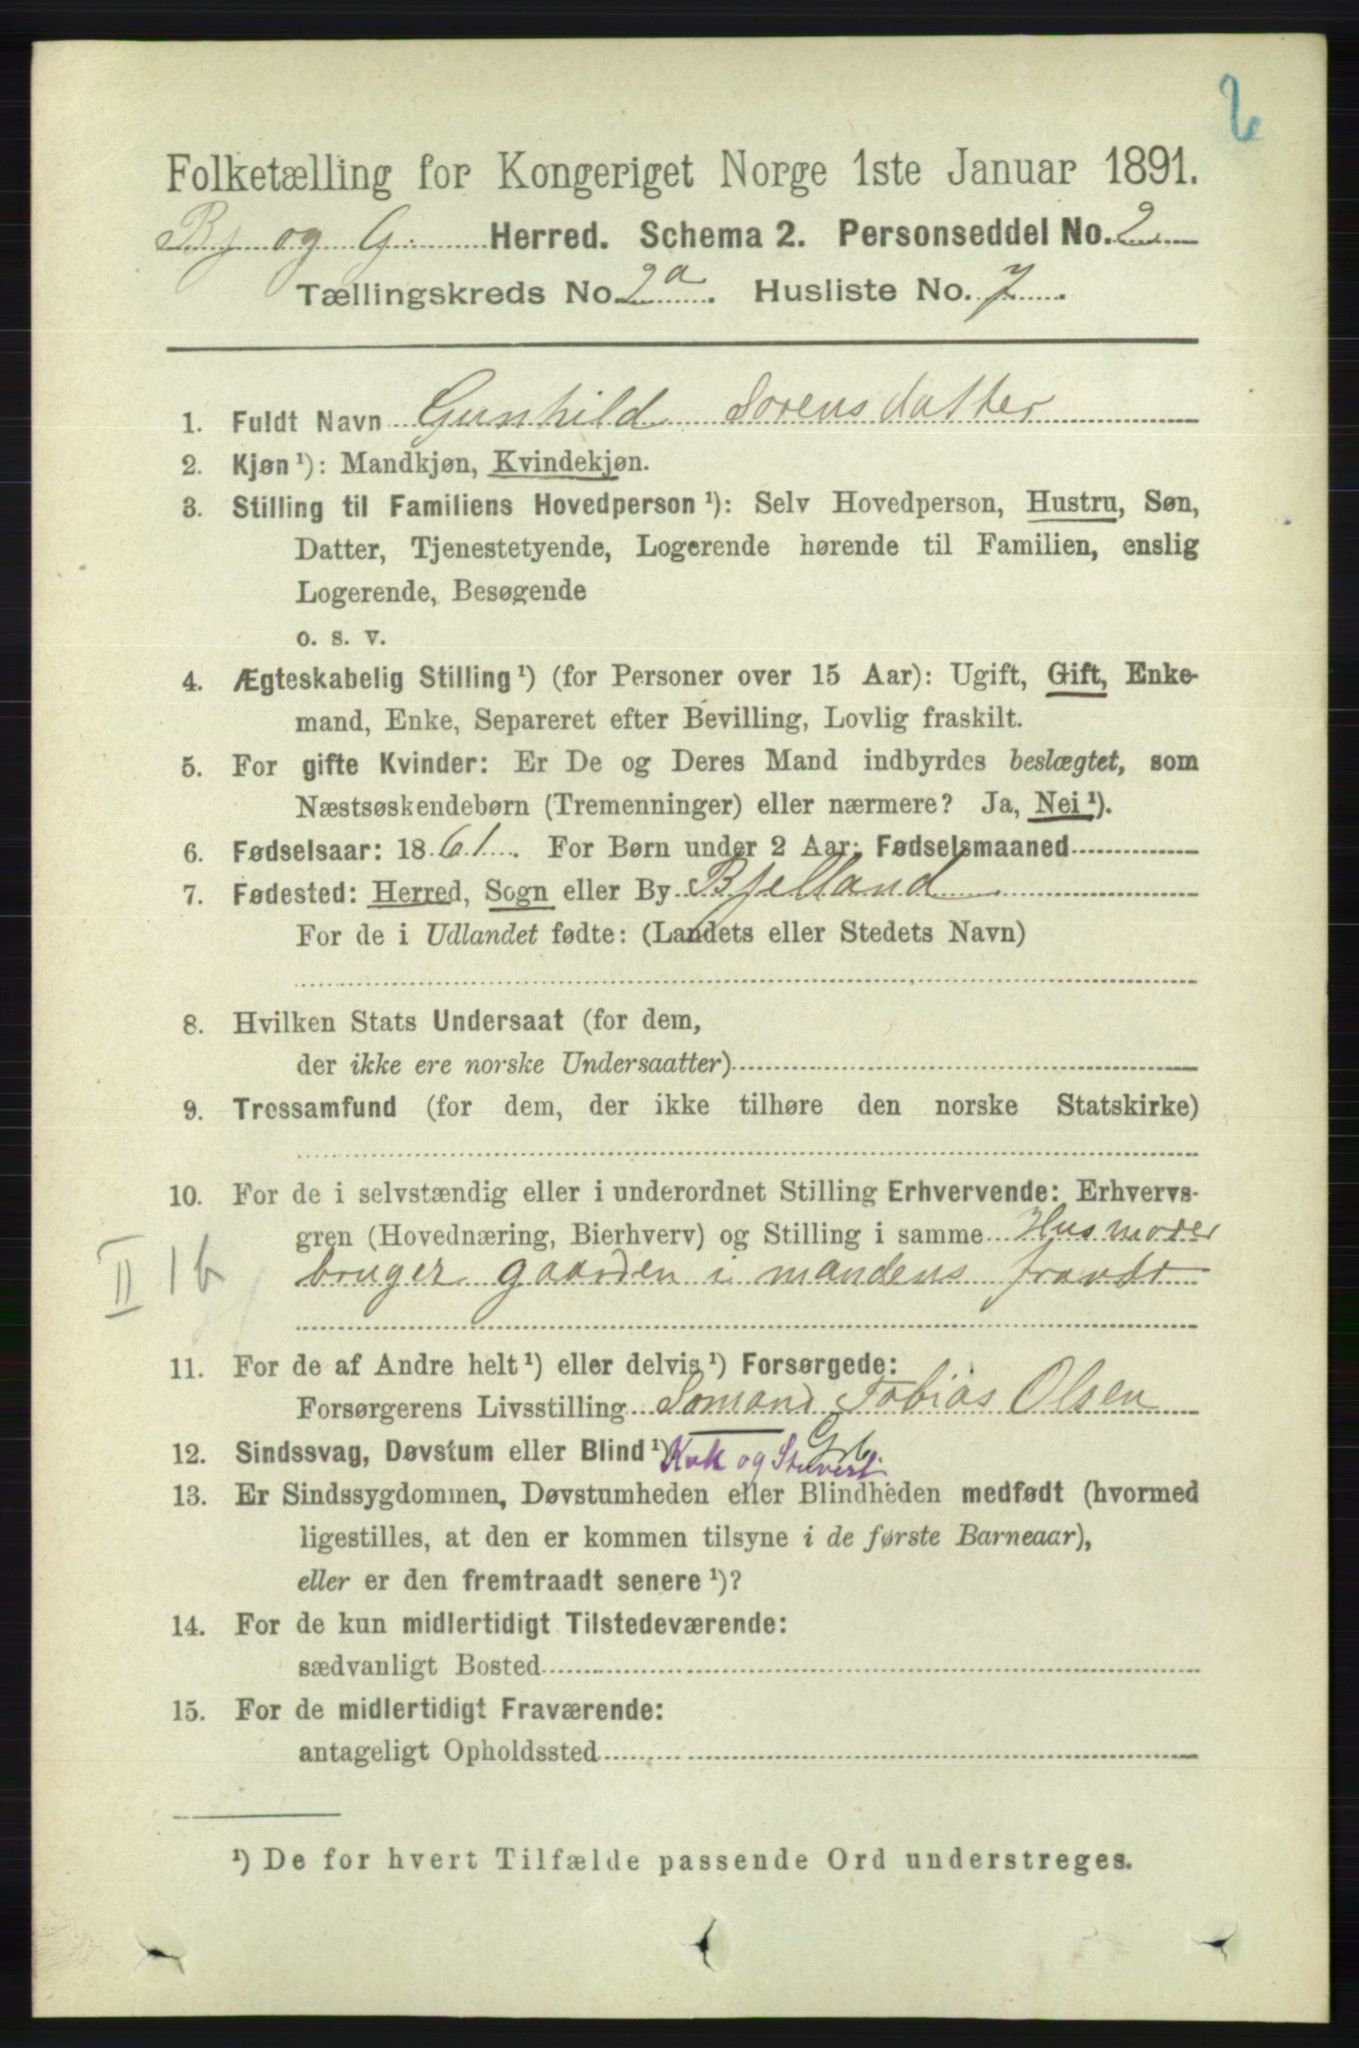 2
Folketælling for Kongeriget Norge 1ste Januar 1891.
Bj og G. Herred. Schema 2. Personseddel No. 2
Tællingskreds No. 2a. Husliste No. 7.
1. Fuldt Navn Gunhild Sorensdatter
2. Kjøn ¹): Mandkjøn, Kvindekjøn.
3. Stilling til Familiens Hovedperson ¹): Selv Hovedperson, Hustru, Søn,
Datter, Tjenestetyende, Logerende hørende til Familien, enslig
Logerende, Besøgende
o. s. v.
4. Ægteskabelig Stilling ¹) (for Personer over 15 Aar): Ugift, Gift, Enke-
mand, Enke, Separeret efter Bevilling, Lovlig fraskilt.
5. For gifte Kvinder: Er De og Deres Mand indbyrdes beslægtet, som
Næstsøskendebørn (Tremenninger) eller nærmere? Ja, Nei ¹).
6. Fødselsaar: 1861. For Børn under 2 Aar: Fødselsmaaned
7. Fødested: Herred, Sogn eller By Bjelland
For de i Udlandet fødte: (Landets eller Stedets Navn)
8. Hvilken Stats Undersaat (for dem,
der ikke ere norske Undersaatter)
9. Trossamfund (for dem, der ikke tilhøre den norske Statskirke)
10. For de i selvstændig eller i underordnet Stilling Erhvervende: Erhvervs-
gren (Hovednæring, Bierhverv) og Stilling i samme Husmoder
II 1b bruger gaarden i mandens
11. For de af Andre helt ¹) eller delvis ¹) Forsørgede:
Forsørgerens Livsstilling Sømand Tobias Olsen
12. Sindssvag, Døvstum eller Blind ¹) Kok og Stuvert Grb
13. Er Sindssygdommen, Døvstumheden eller Blindheden medfødt (hvormed
ligestilles, at den er kommen tilsyne i de første Barneaar),
eller er den fremtraadt senere ¹)?
14. For de kun midlertidigt Tilstedeværende:
sædvanligt Bosted
15. For de midlertidigt Fraværende:
antageligt Opholdssted
¹) De for hvert Tilfælde passende Ord understreges.